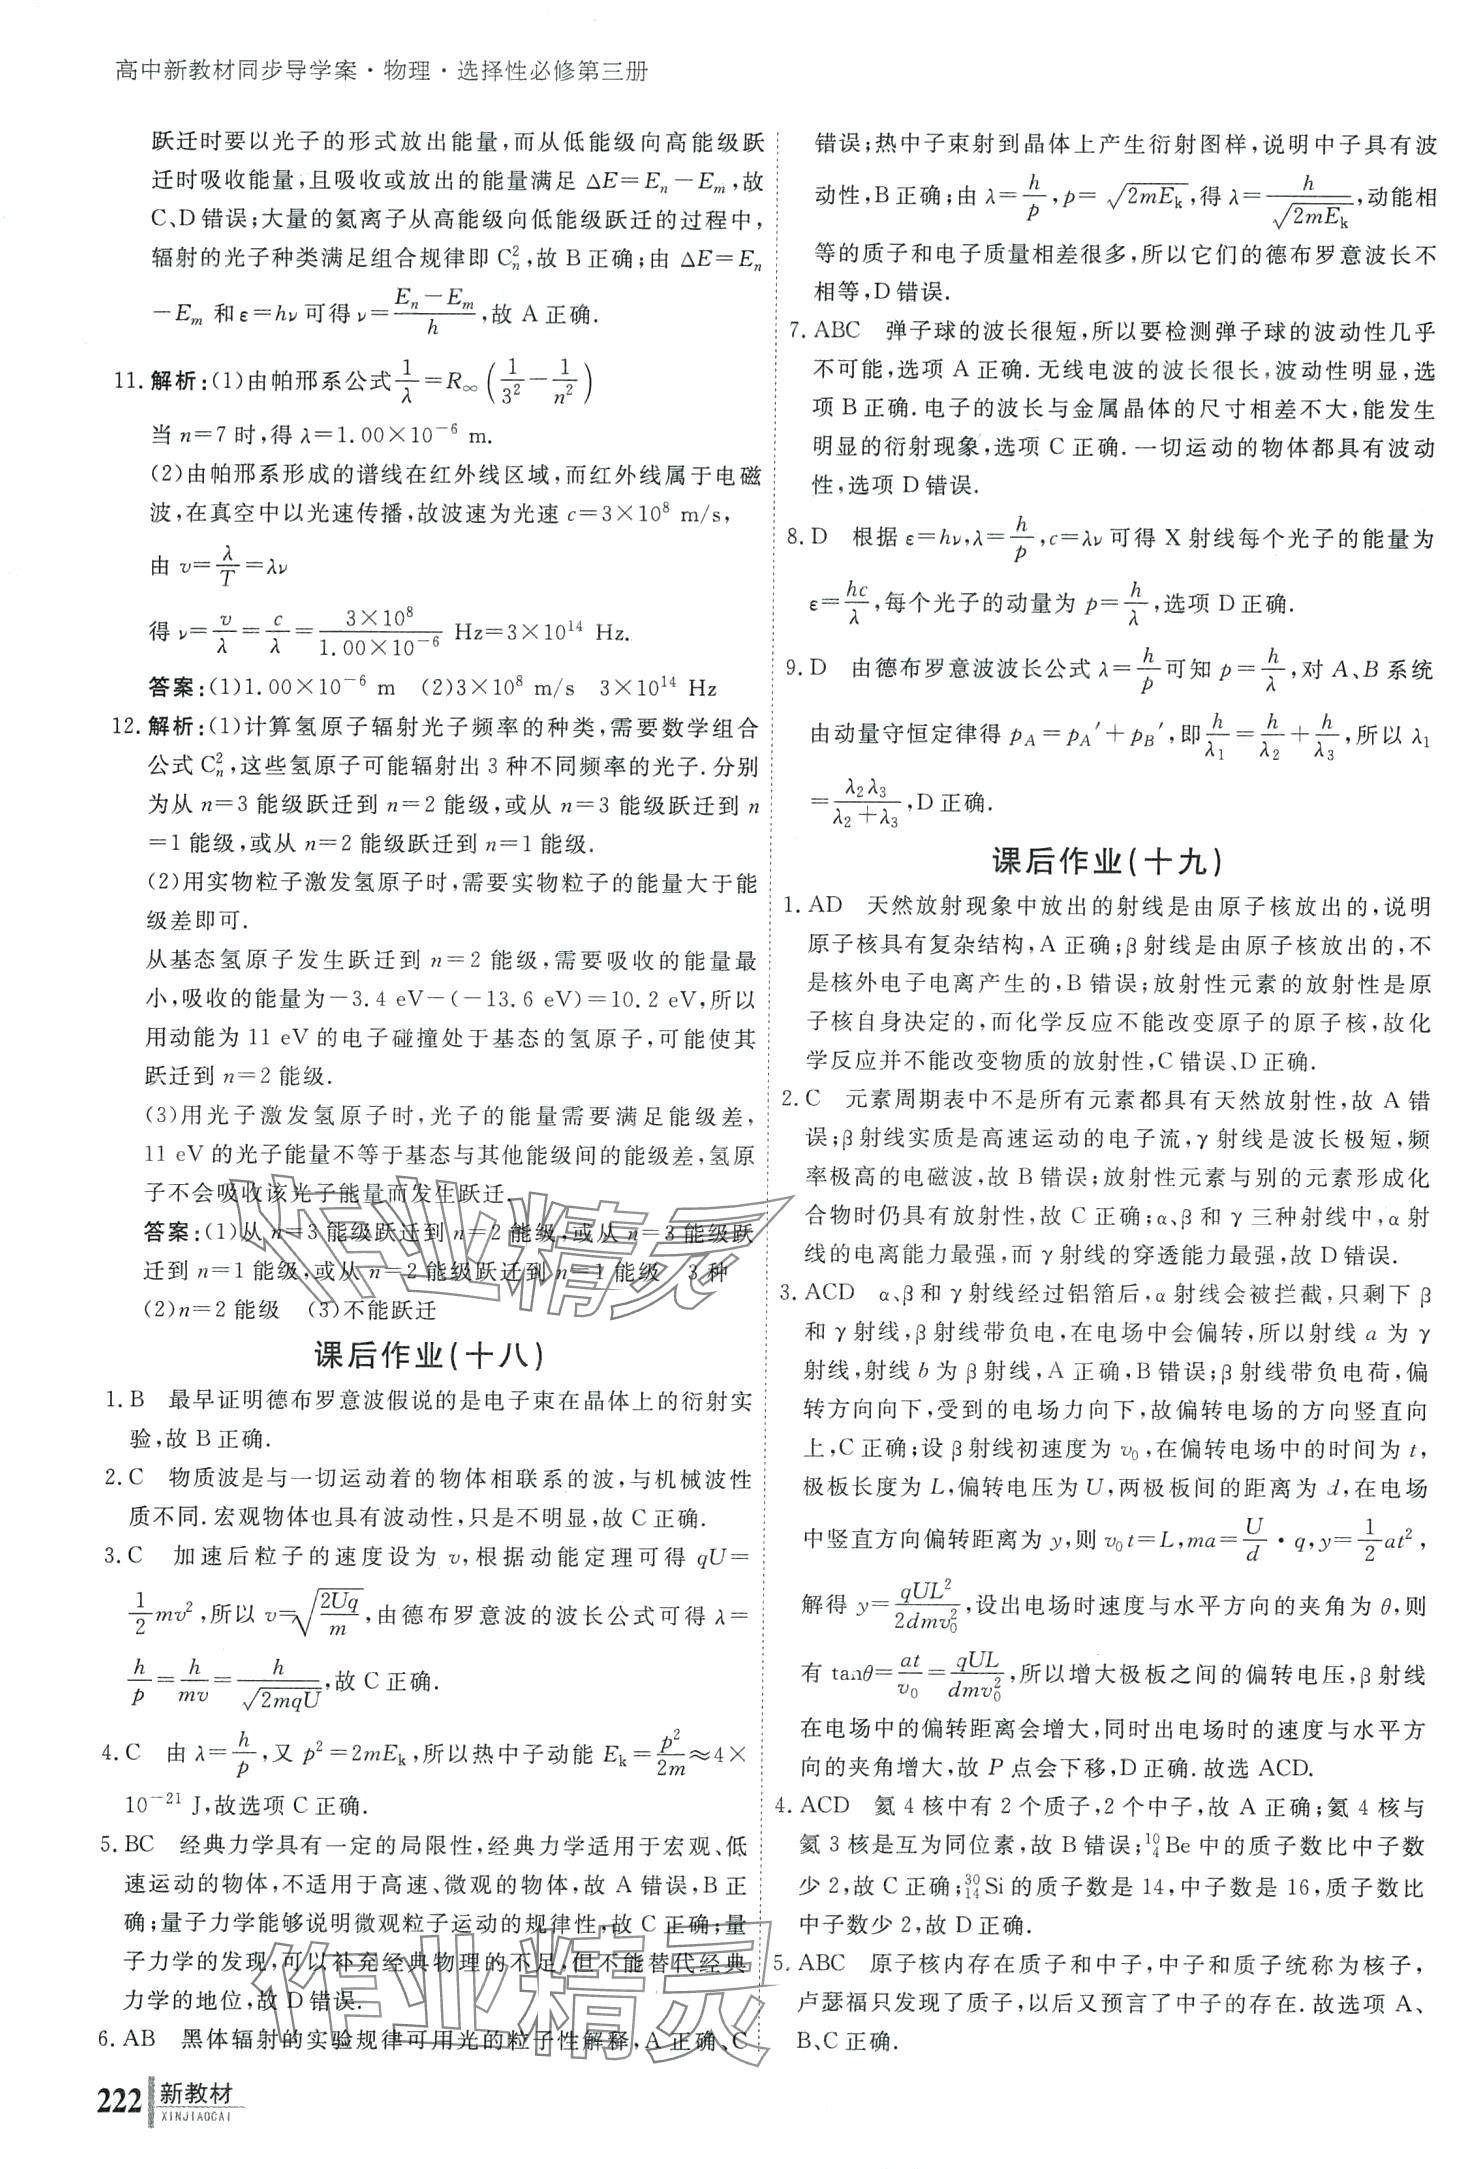 高中新教材同步导学案·物理·选择性必修第三册
跃迁时要以光子的形式放出能量,而从低能级向高能级跃
迁时吸收能量,且吸收或放出的能量满足 ΔE=Eₙ-Eₘ,故
C、D错误;大量的氦离子从高能级向低能级跃迁的过程中,
辐射的光子种类满足组合规律即 C²ₙ,故 B正确;由 ΔE=Eₙ
-Eₘ 和 ε=hν 可得 ν=(Eₙ-Eₘ)/h,故 A 正确.
11. 解析:(1)由帕邢系公式 1/λ=R∞(1/3²-1/n²)
当 n=7 时,得 λ=1.00×10⁻⁶ m.
(2)由帕邢系形成的谱线在红外线区域,而红外线属于电磁
波,在真空中以光速传播,故波速为光速 c=3×10⁸ m/s,
由 v=λ/T=λν
得 ν=v/λ=c/λ=3×10⁸/1.00×10⁻⁶ Hz=3×10¹⁴ Hz.
答案:(1)1.00×10⁻⁶ m (2)3×10⁸ m/s 3×10¹⁴ Hz
12. 解析:(1)计算氢原子辐射光子频率的种类,需要数学组合
公式 C²ₙ,这些氢原子可能辐射出 3 种不同频率的光子.分别
为从 n=3 能级跃迁到 n=2 能级,或从 n=3 能级跃迁到 n
=1能级,或从 n=2 能级跃迁到 n=1 能级.
(2)用实物粒子激发氢原子时,需要实物粒子的能量大于能
级差即可.
从基态氢原子发生跃迁到 n=2 能级,需要吸收的能量最
小,吸收的能量为-3.4 eV-(-13.6 eV)=10.2 eV,所以
用动能为 11 eV 的电子碰撞处于基态的氢原子,可能使其
跃迁到 n=2 能级.
(3)用光子激发氢原子时,光子的能量需要满足能级差,
11 eV 的光子能量不等于基态与其他能级间的能级差,氢原
子不会吸收该光子能量而发生跃迁.
答案:(1)从 n=3 能级跃迁到 n=2 能级,或从 n=3 能级跃
迁到 n=1 能级,或从 n=2 能级跃迁到 n=1 能级 3 种
(2)n=2 能级 (3)不能跃迁
课后作业(十八)
1. B 最早证明德布罗意波假说的是电子束在晶体上的衍射实
验,故 B 正确.
2. C 物质波是与一切运动着的物体相联系的波,与机械波性
质不同.宏观物体也具有波动性,只是不明显,故 C 正确.
3. C 加速后粒子的速度设为 v,根据动能定理可得 qU=
1/2 mv²,所以 v=√(2Uq/m),由德布罗意波的波长公式可得 λ=
h/p=h/mv=h/√(2mqU),故 C 正确.
4. C 由 λ=h/p,又 p²=2mEₖ,所以热中子动能 Eₖ=p²/2m≈4×
10⁻²¹ J,故选项 C 正确.
5. BC 经典力学具有一定的局限性,经典力学适用于宏观、低
速运动的物体,不适用于高速、微观的物体,故 A 错误,B 正
确;量子力学能够说明微观粒子运动的规律性,故 C 正确;量
子力学的发现,可以补充经典物理的不足,但不能替代经典
力学的地位,故 D 错误.
6. AB 黑体辐射的实验规律可用光的粒子性解释,A 正确、C
222 新教材
XINJIAOCAI
错误;热中子束射到晶体上产生衍射图样,说明中子具有波
动性,B 正确;由 λ=h/p,p=√(2mEₖ),得 λ=h/√(2mEₖ),动能相
等的质子和电子质量相差很多,所以它们的德布罗意波长不
相等,D 错误.
7. ABC 弹子球的波长很短,所以要检测弹子球的波动性几乎
不可能,选项 A 正确.无线电波的波长很长,波动性明显,选
项 B 正确.电子的波长与金属晶体的尺寸相差不大,能发生
明显的衍射现象,选项 C 正确.一切运动的物体都具有波动
性,选项 D 错误.
8. D 根据 ε=hν,λ=h/p,c=λν 可得 X 射线每个光子的能量为
ε=hc/λ,每个光子的动量为 p=h/λ,选项 D 正确.
9. D 由德布罗意波波长公式 λ=h/p 可知 p=h/λ,对 A、B 系统
由动量守恒定律得 p_A=p_A′+p_B′,即 h/λ₁=h/λ₂+h/λ₃,所以 λ₁
=λ₂λ₃/(λ₂+λ₃),D 正确.
课后作业(十九)
1. AD 天然放射现象中放出的射线是由原子核放出的,说明
原子核具有复杂结构,A 正确;β 射线是由原子核放出的,不
是核外电子电离产生的,B 错误;放射性元素的放射性是原
子核自身决定的,而化学反应不能改变原子的原子核,故化
学反应并不能改变物质的放射性,C 错误、D 正确.
2. C 元素周期表中不是所有元素都具有天然放射性,故 A 错
误;β 射线实质是高速运动的电子流,γ 射线是波长极短,频
率极高的电磁波,故 B 错误;放射性元素与别的元素形成化
合物时仍具有放射性,故 C 正确;α、β 和 γ 三种射线中,α 射
线的电离能力最强,而 γ 射线的穿透能力最强,故 D 错误.
3. ACD α、β 和 γ 射线经过铝箔后,α 射线会被拦截,只剩下 β
和 γ 射线,β 射线带负电,在电场中会偏转,所以射线 a 为 γ
射线,射线 b 为 β 射线,A 正确,B 错误;β 射线带负电荷,偏
转方向向下,受到的电场力向下,故偏转电场的方向竖直向
上,C 正确;设 β 射线初速度为 v₀,在偏转电场中的时间为 t,
极板长度为 L,偏转电压为 U,两极板间的距离为 d,在电场
中竖直方向偏转距离为 y,则 v₀t=L,ma=U/d·q,y=1/2 at²,
解得 y=qUL²/2dmv₀²,设出电场时速度与水平方向的夹角为 θ,则
有 tanθ=at/v₀=qUL/dmv₀²,所以增大极板之间的偏转电压,β 射线
在电场中的偏转距离会增大,同时出电场时的速度与水平方
向的夹角增大,故 P 点会下移,D 正确.故选 ACD.
4. ACD 氦 4 核中有 2 个质子,2 个中子,故 A 正确;氦 4 核与
氦 3 核是互为同位素,故 B 错误;¹⁰₄Be 中的质子数比中子数
少 2,故 C 正确;³⁰₁₄Si 的质子数是 14,中子数是 16,质子数比
中子数少 2,故 D 正确.
5. ABC 原子核内存在质子和中子,中子和质子统称为核子,
卢瑟福只发现了质子,以后又预言了中子的存在.故选项 A、
B、C 正确.
作业精灵
作业精灵